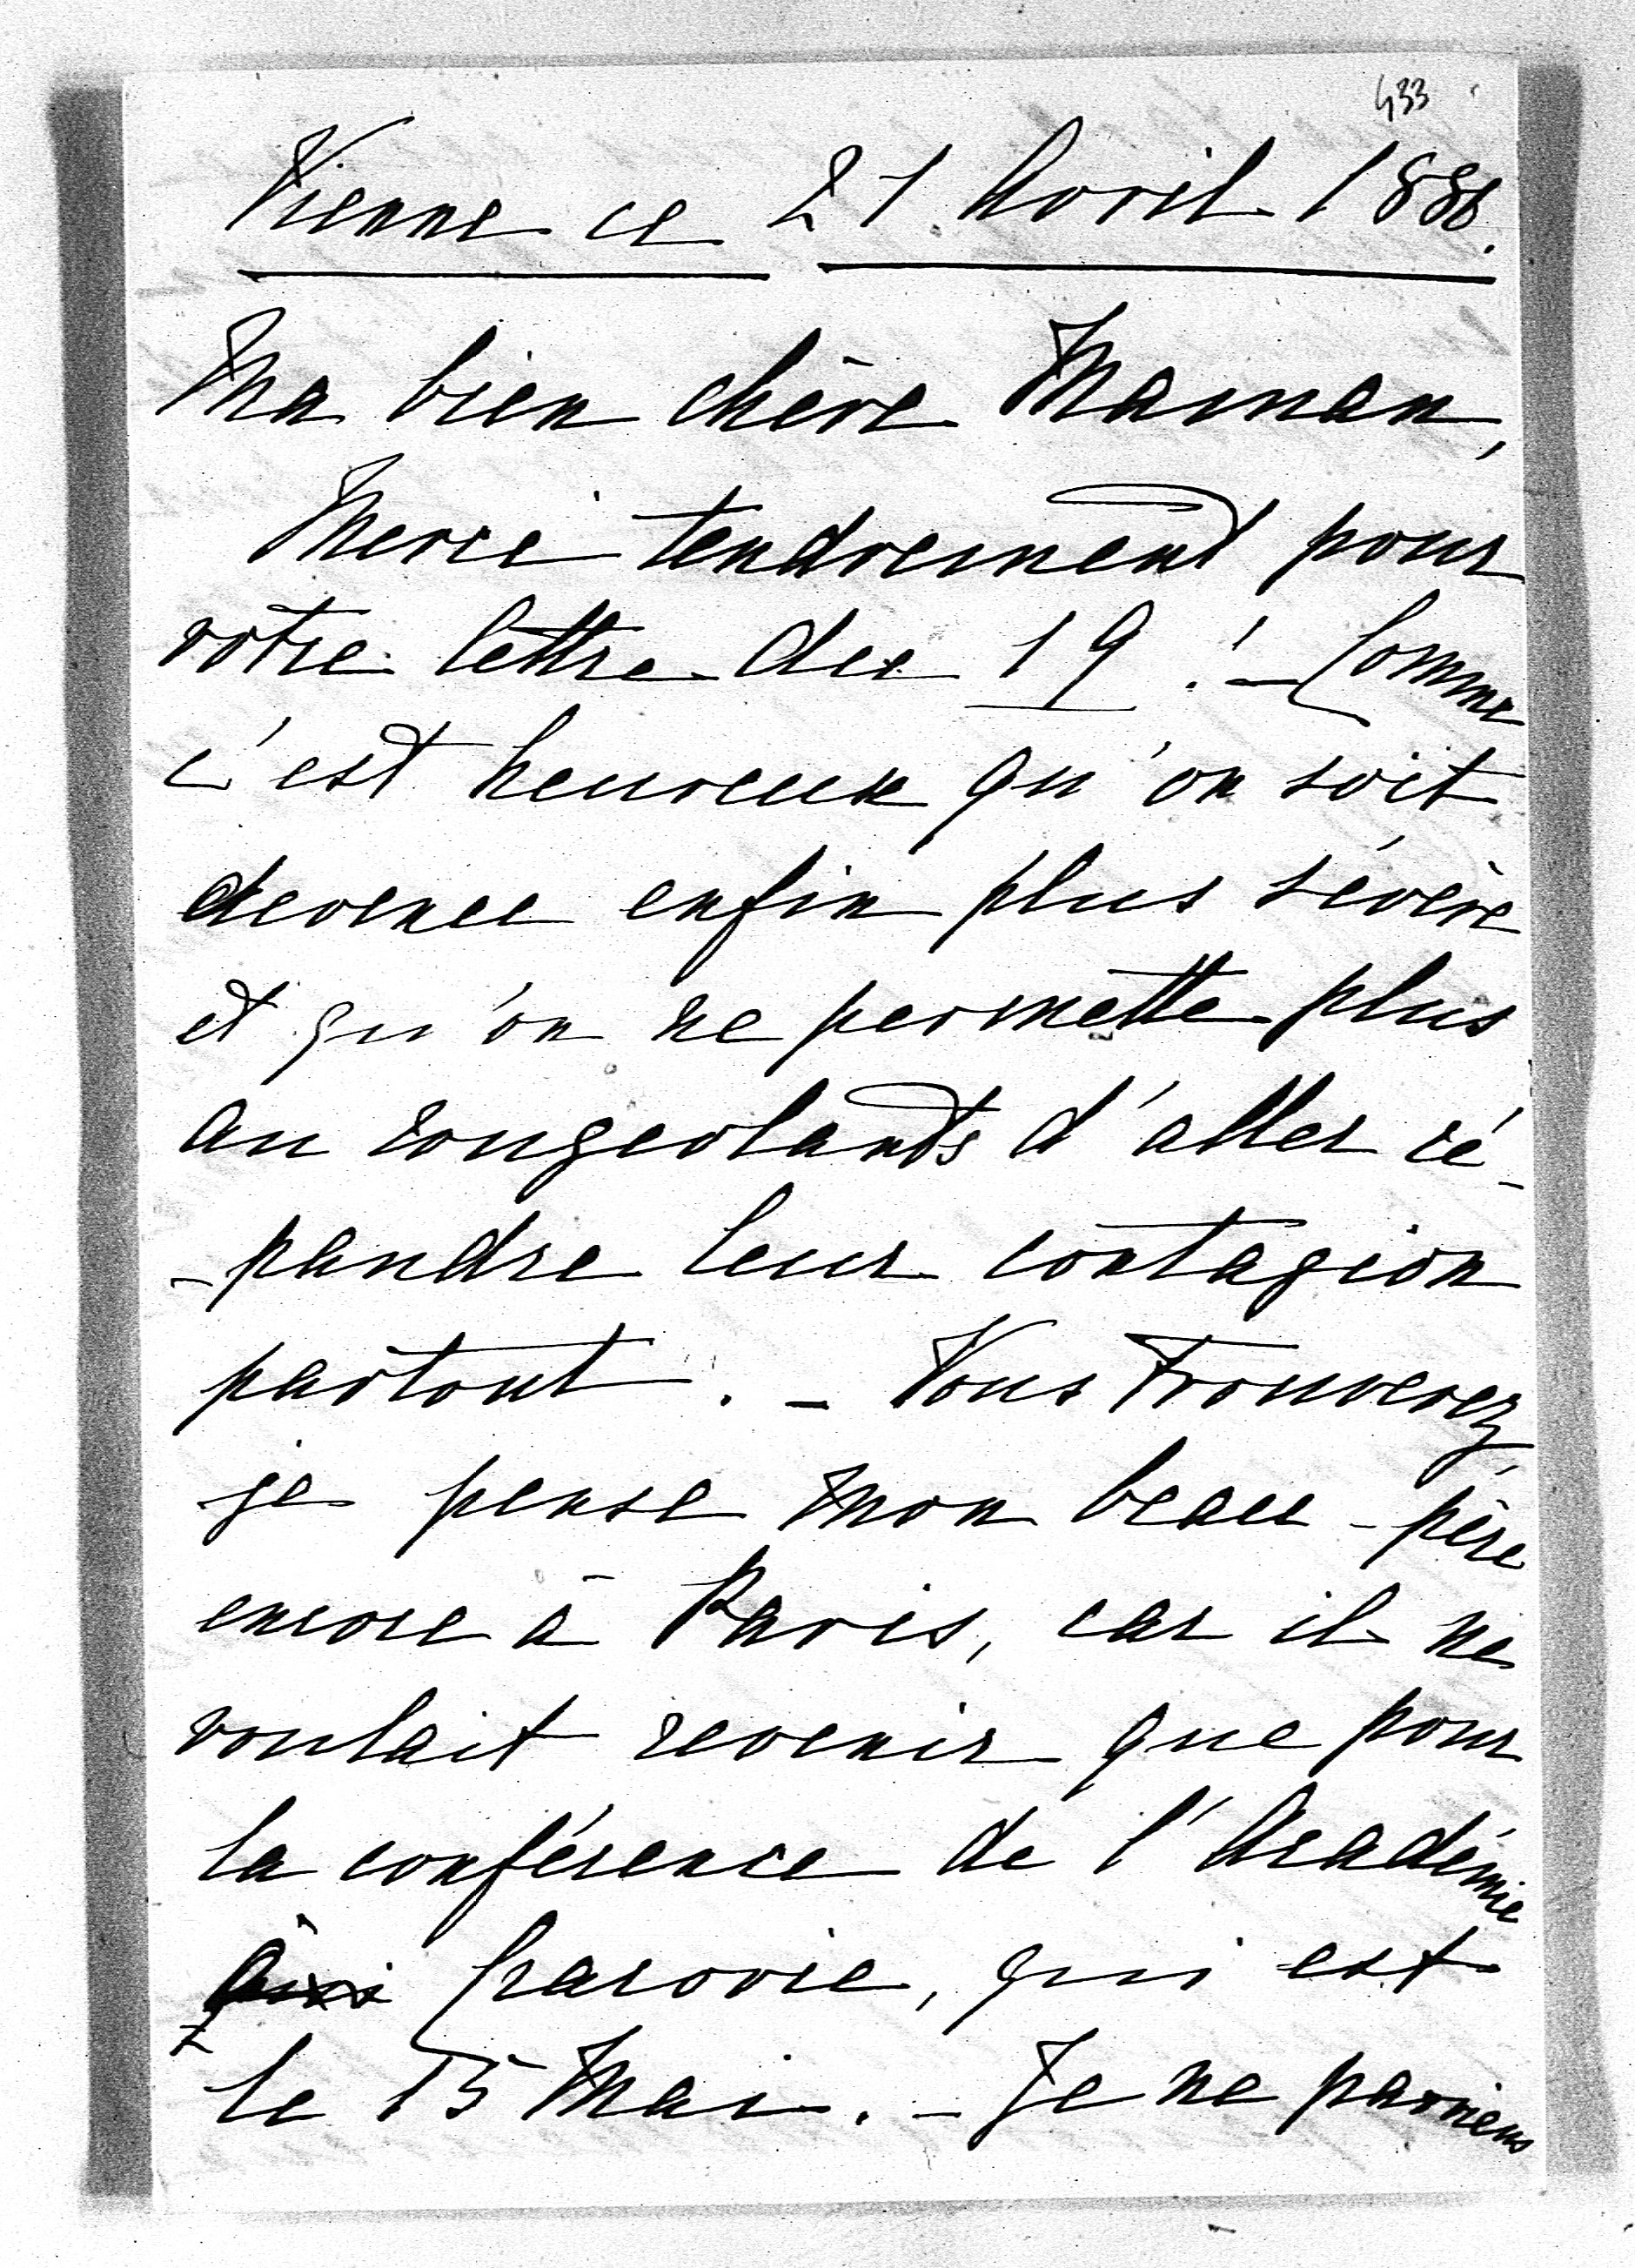 433
Vienne ce 21 Avril 1888.
Ma bien chère Maman,
Merci tendrement pour
votre lettre du 19 ! – Comme
c'est heureux qu'on soit
devenu enfin plus sévère
et qu'on ne permette plus
au rougeolants d'aller ré-
-pandre leur contagion
partout. – Vous trouverez,
je pense mon beau-père
encore à Paris, car il ne
voulait revenir que pour
la conférence de l'Académie
à Cracovie, qui est
le 15 Mai. – Je ne parviens